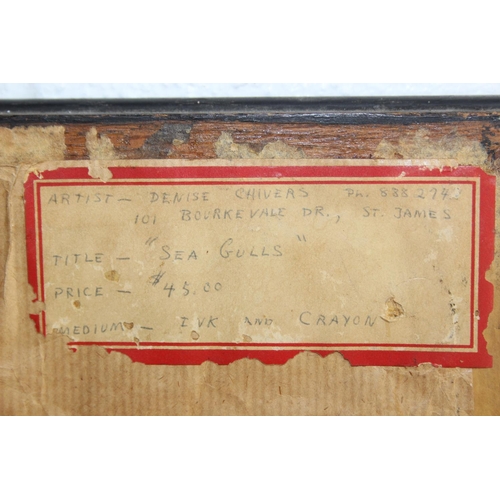 ARTIST - DENISE CHIVERS PH. 888 2742
101 BOURKEVALE DR., ST. JAMES
TITLE - "SEA · GULLS"
PRICE - $45.00
MEDIUM - INK AND CRAYON